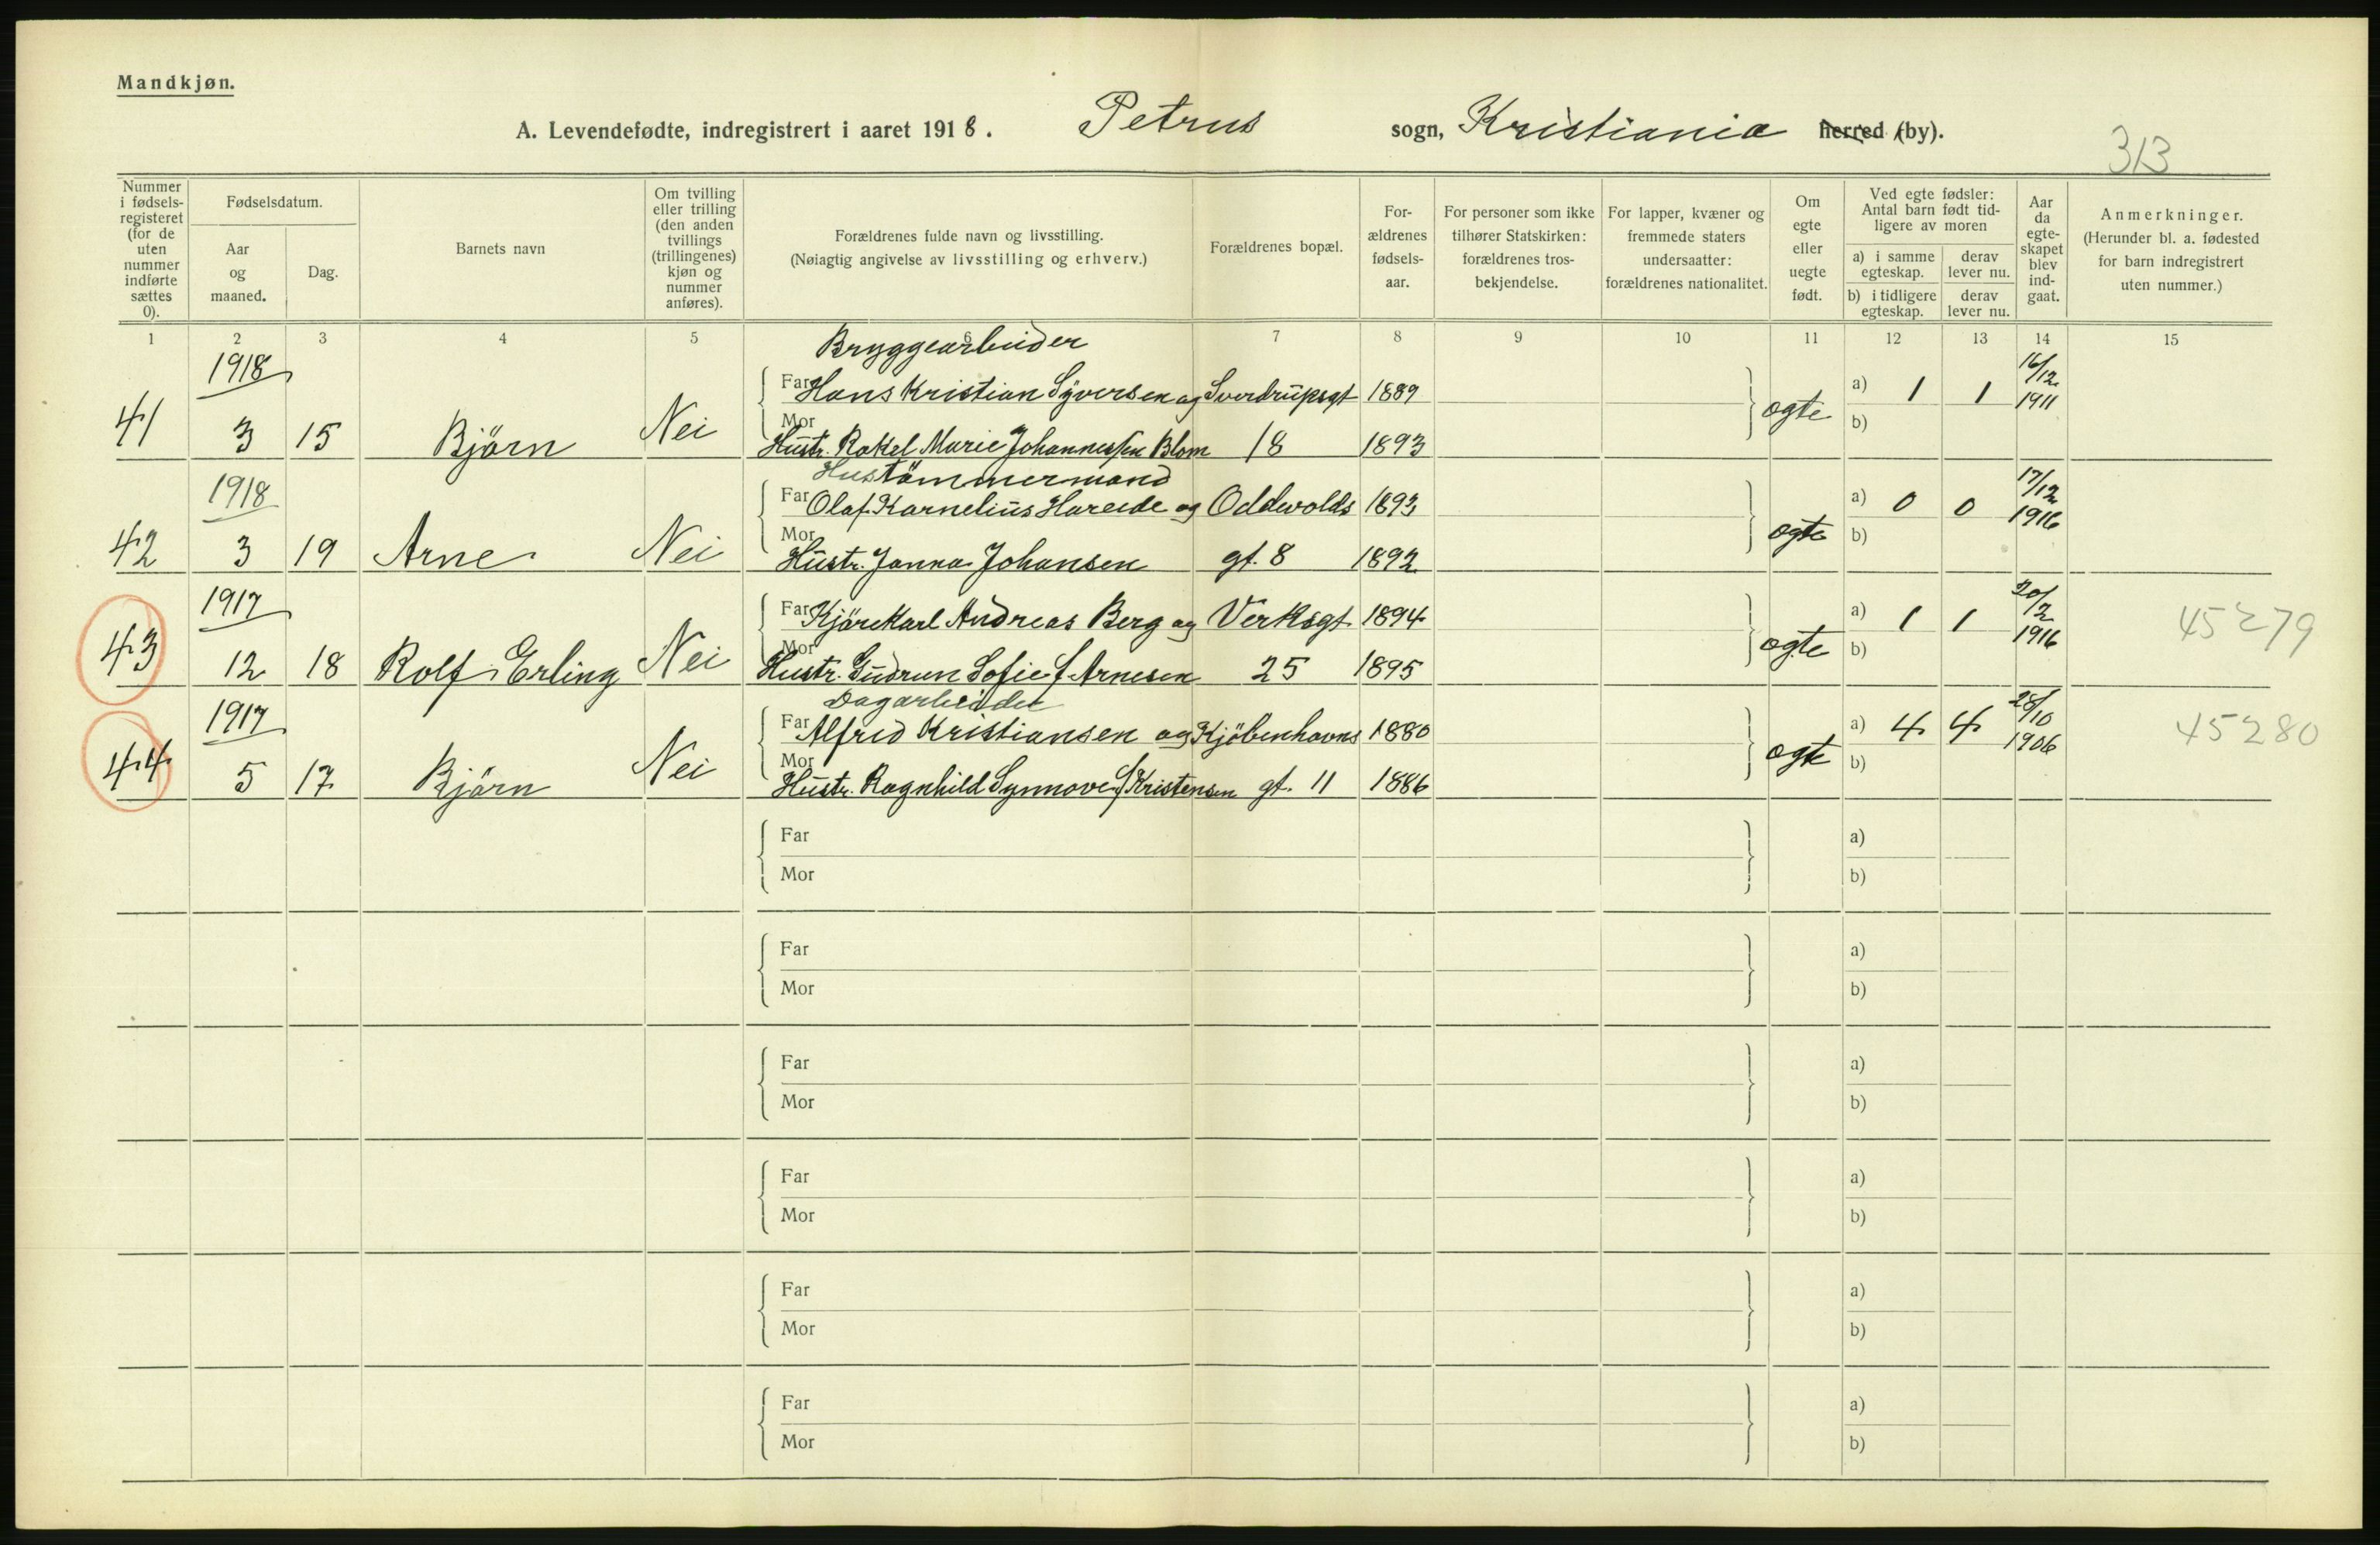 Mandkjøn.
A. Levendefødte, indregistrert i aaret 1918. Petrus sogn, Kristiania herred (by).
313
Nummer i fødselsregisteret (for de uten nummer indførte sættes 0).
Fødselsdatum.
Aar og maaned.
Dag.
Barnets navn
Om tvilling eller trilling (den anden tvillings (trillingenes) kjøn og nummer anføres).
Forældrenes fulde navn og livsstilling.
(Nøiagtig angivelse av livsstilling og erhverv.)
Forældrenes bopæl.
For-ældrenes fødsels-aar.
For personer som ikke tilhører Statskirken: forældrenes tros-bekjendelse.
For lapper, kvæner og fremmede staters undersaatter: forældrenes nationalitet.
Om egte eller uegte født.
Ved egte fødsler: Antal barn født tid-ligere av moren
a) i samme egteskap.
derav lever nu.
b) i tidligere egteskap.
derav lever nu.
Aar da egte-skapet blev ind-gaat.
Anmerkninger.
(Herunder bl. a. fødested for barn indregistrert uten nummer.)
1 2 3 4 5 6 7 8 9 10 11 12 13 14 15
1918 Bryggearbeider 16/12
Far Hans Kristian Syversen og Sverdrupsgt 1889 a) 1 1 1911
41 3 15 Björn Nei Mor Hustr. Rakel Marie Johannessen Blom 18 1893 egte b)
1918 Hustömmermand 17/12
Far Olaf Karnelius Hareide og Oddvolds 1893 a) 0 0 1916
42 3 19 Arne Nei Mor Hustr. Janna Johansen gt. 8 1892 egte b)
1917 20/2
Far Kjörekarl Andreas Berg og Verksgt 1894 a) 1 1 1916 45279
43 12 18 Rolf Erling Nei Mor Hustr. Gudrun Sofie f. Arnesen 25 1895 egte b)
1917 Dagarbeider 28/10
Far Alfred Kristiansen og Kjöbenhavns 1880 a) 4 4 1906 45280
44 5 17 Björn Nei Mor Hustr. Ragnhild Synnove f. Kristensen gt. 11 1886 egte b)
Far a)
Mor b)
Far a)
Mor b)
Far a)
Mor b)
Far a)
Mor b)
Far a)
Mor b)
Far a)
Mor b)